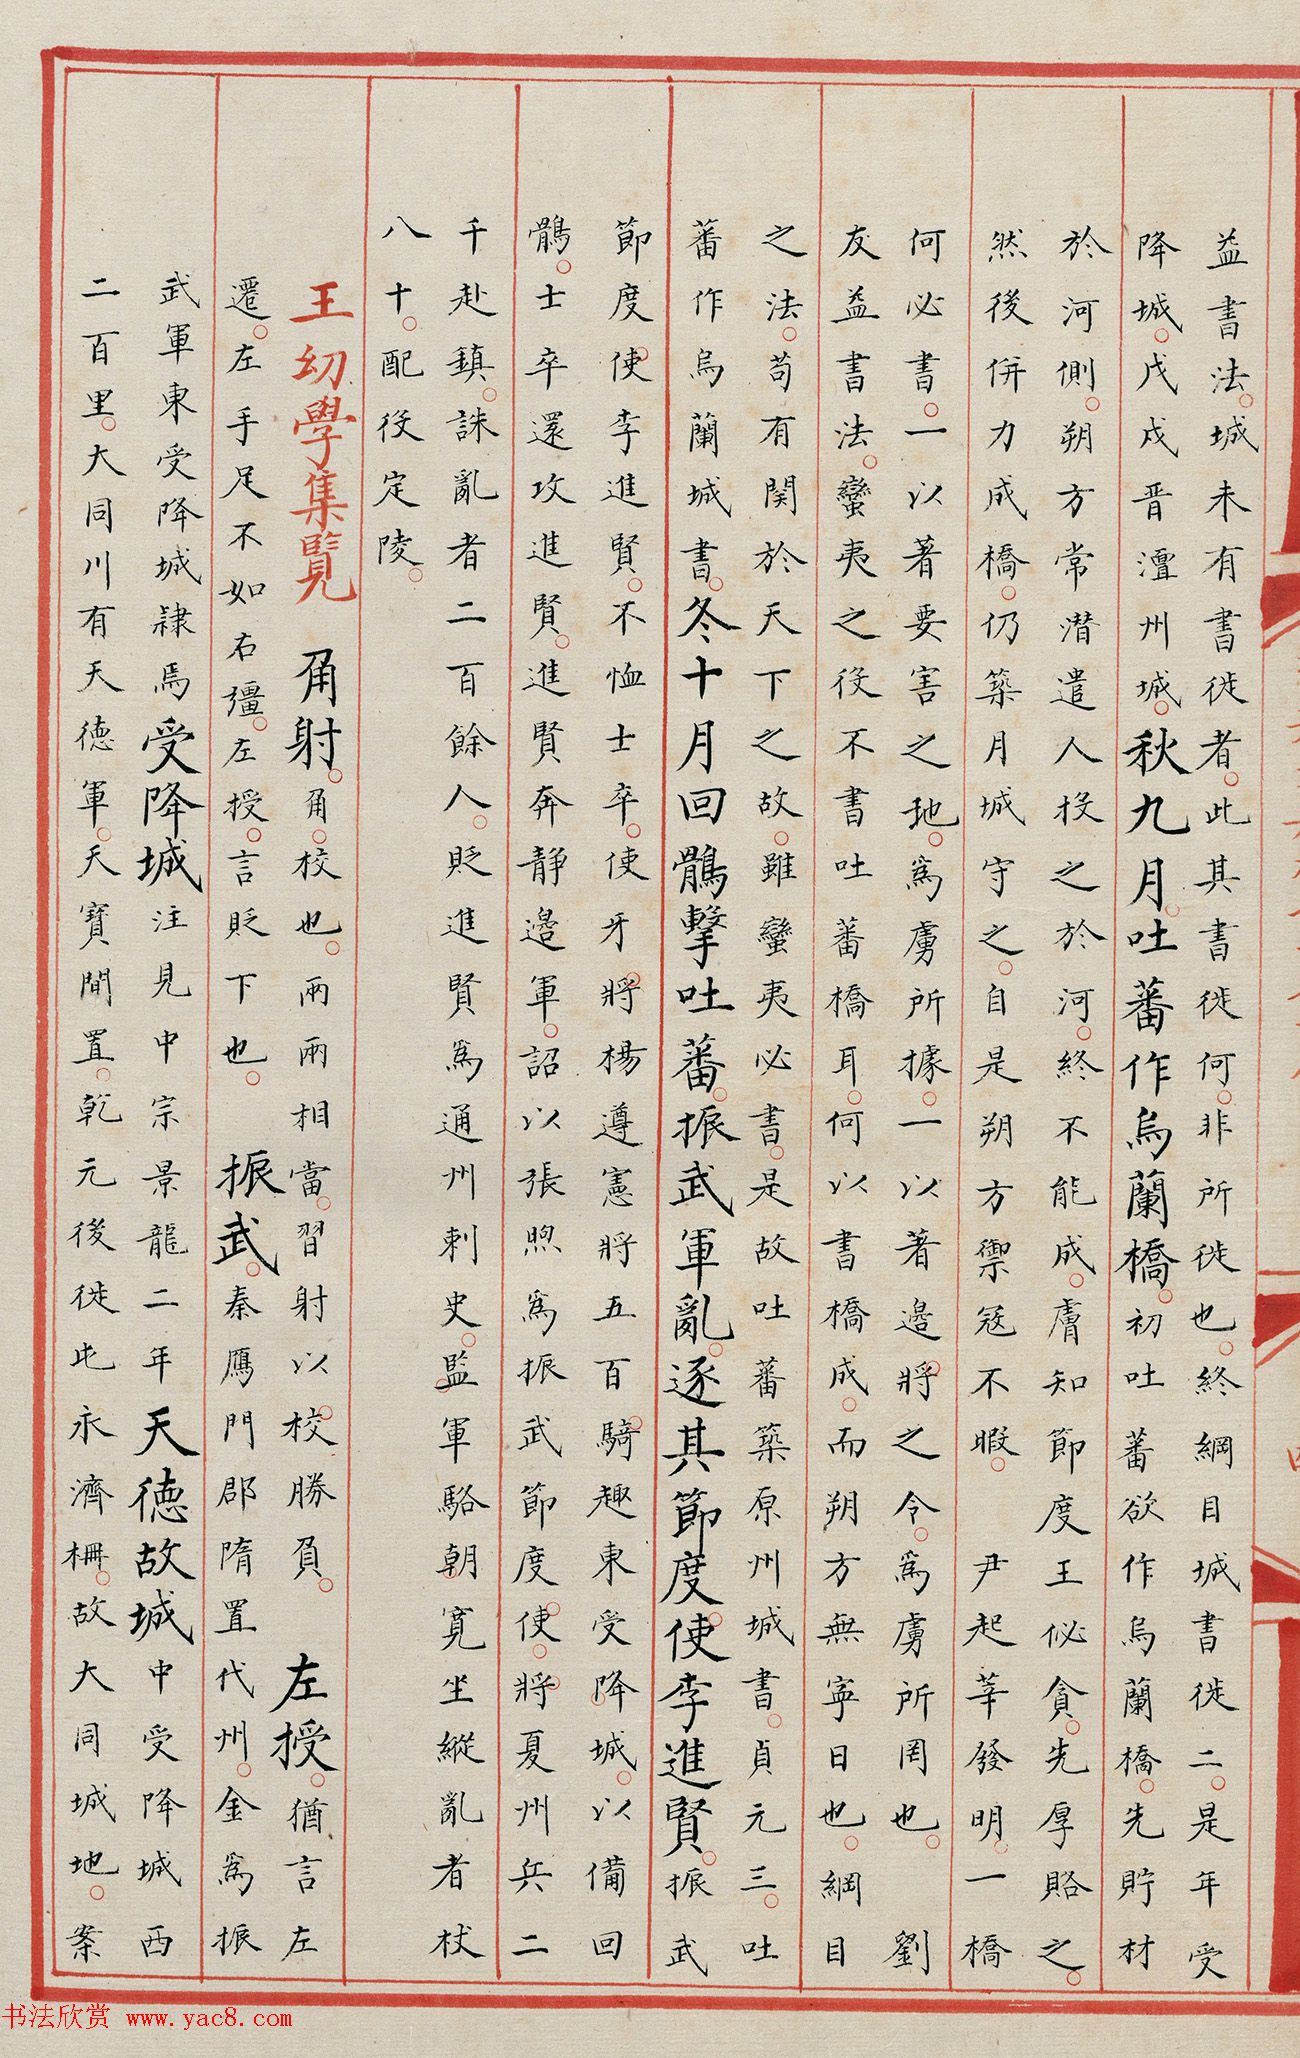 益書法。城未有書徙者。此其書徙何。非所徙也。終綱目城書徙二。是年受
降城。戊戌晋澶州城。秋九月。吐蕃作烏蘭橋。初吐蕃欲作烏蘭橋。先貯材
於河側。朔方常潛遣人投之於河。終不能成。膚知節度王佖貪。先厚賂之。
然後併力成橋。仍築月城守之。自是朔方禦寇不暇。 尹起莘發明。一橋
何必書。一以著要害之地。爲虜所據。一以著邊將之令。爲虜所罔也。 劉
友益書法。蠻夷之役不書吐蕃橋耳。何以書橋成。而朔方無寧日也。綱目
之法。苟有関於天下之故。雖蠻夷必書。是故吐蕃築原州城書。貞元三。吐
蕃作烏蘭城書。冬十月回鶻擊吐蕃。振武軍亂。逐其節度使李進賢。振武
節度使李進賢。不恤士卒。使牙將楊遵憲將五百騎趣東受降城。以備回
鶻。士卒還攻進賢。進賢奔靜邊軍。詔以張煦爲振武節度使。將夏州兵二
千赴鎮。誅亂者二百餘人。貶進賢爲通州刺史。監軍駱朝寬坐縱亂者杖
八十。配役定陵。
王幼學集覽 角射。角。校也。兩兩相當。習射以校勝負。 左授。猶言左
遷。左手足不如右彊。左授。言貶下也。 振武。秦鴈門郡隋置代州。金爲振
武軍東受降城隷焉受降城注見中宗景龍二年天德故城中受降城西
二百里。大同川有天德軍。天寶間置。乾元後徙屯永濟柵。故大同城地。案